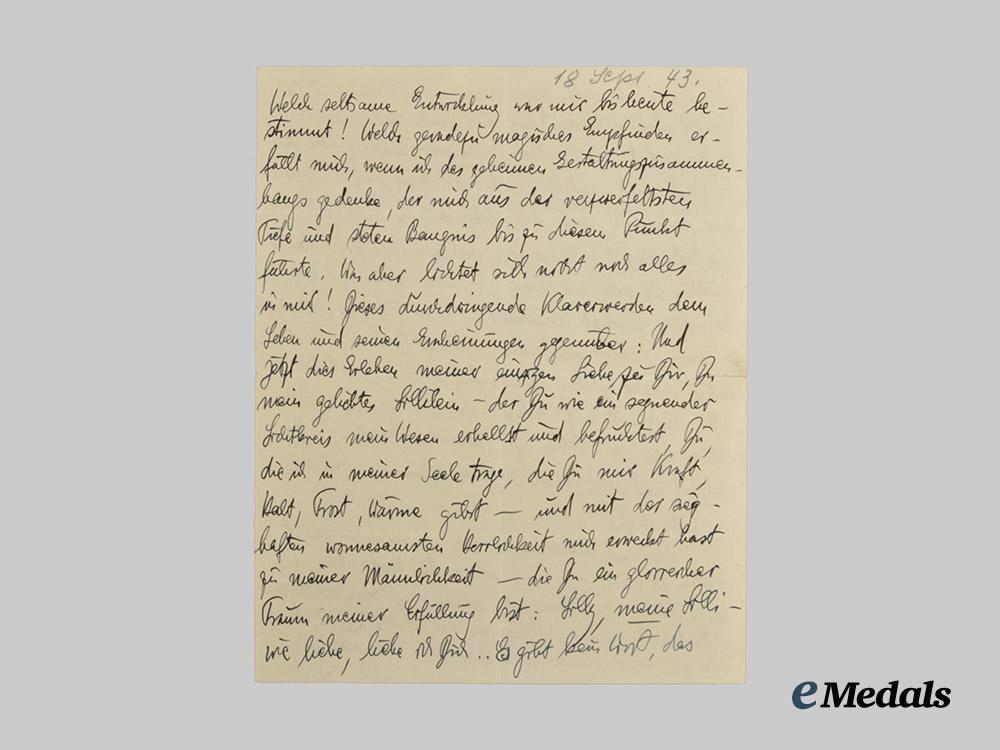 18. Sept. 43.
Welch seltsame Entwicklung war mir bis heute be-
stimmt! Welch geradezu magisches Empfinden er-
füllt mich, wenn ich des geheimen Gestaltungszusammen-
hangs gedenke, der mich aus der verzweifeltsten
Tiefe und steten Bangnis bis zu diesem Punkt
führte. Was aber lichtet sich nicht noch alles
in mir! Dieses durchdringende Klarerwerden dem
Leben und seinen Erscheinungen gegenüber: Und
jetzt dies Erleben meiner einzigen Liebe zu Dir, Du
mein geliebtes Lillilein – der Du wie ein segnender
Lichtkreis mein Wesen erhellst und befruchtest, Du,
die ich in meiner Seele trage, die Du mir Kraft,
Halt, Trost, Wärme gibst – und mit der
haften wonnesamsten Herrlichkeit mich erweckt hast
zu meiner Männlichkeit – die Du ein glorreicher
Traum meiner Erfüllung bist: Lilly, meine Lilli –
wie liebe, liebe ich Dich .. Es gibt kein Wort, das
eMedals